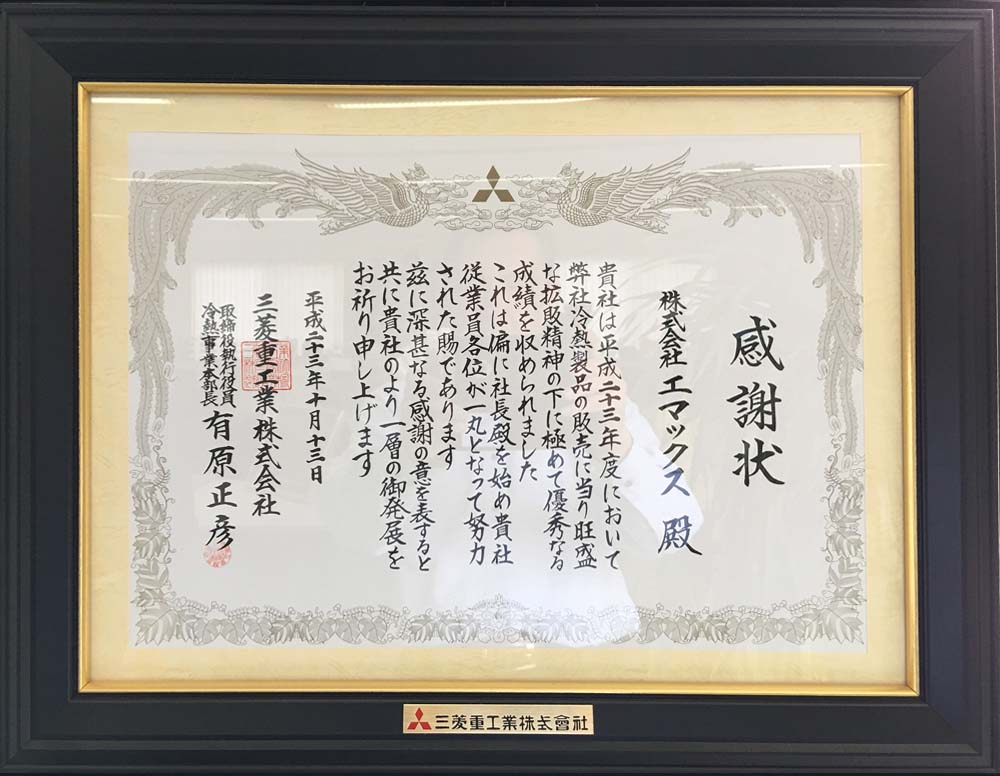 感謝状
株式会社 エマックス 殿
貴社は平成二十三年度において
弊社冷熱製品の販売に当り旺盛
な拡販精神の下に極めて優秀なる
成績を収められました
これは偏に社長殿を始め貴社
従業員各位が一丸となって努力
された賜であります
茲に深甚なる感謝の意を表すると
共に貴社のより一層の御発展を
お祈り申し上げます
平成二十三年十月十三日
三菱重工業株式会社
取締役執行役員
冷熱事業本部長 有原正彦
三菱重工業株式會社